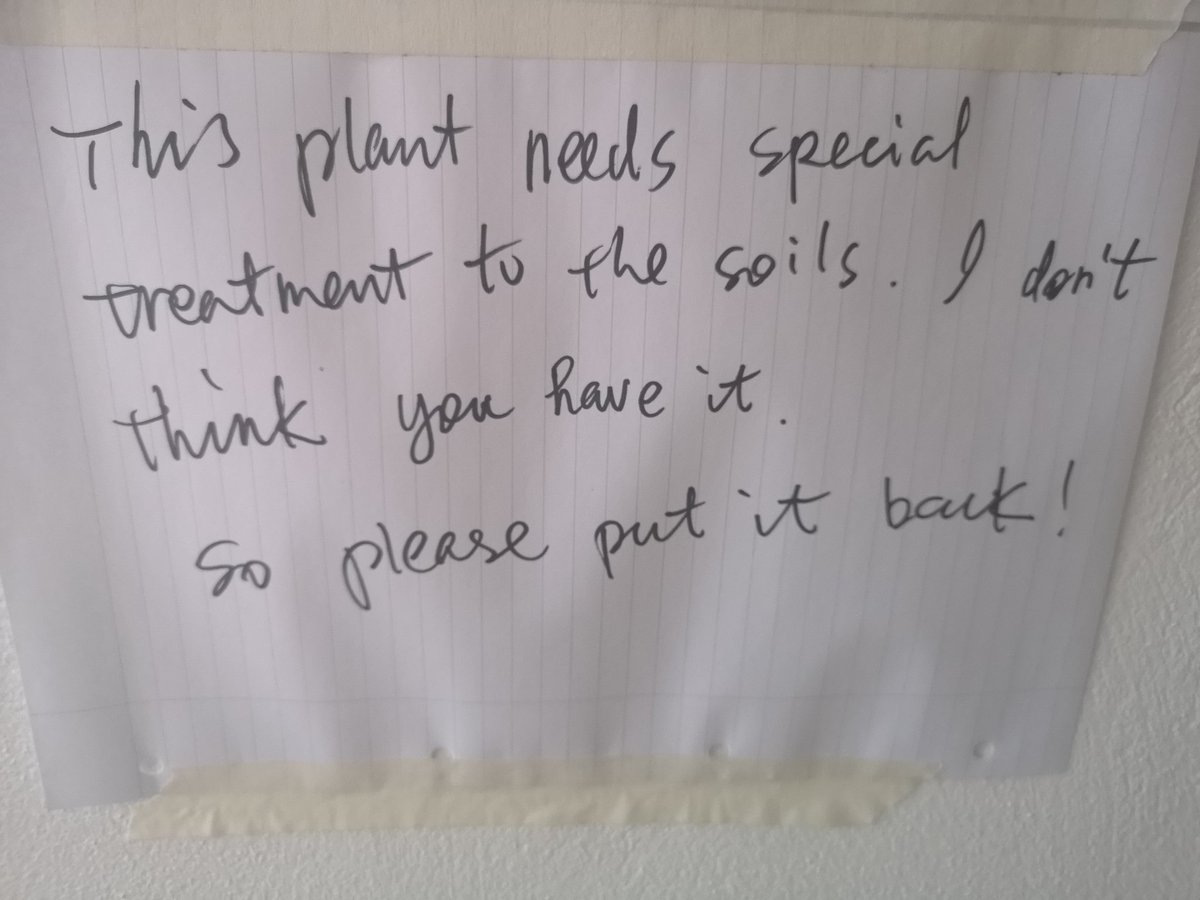 This plant needs special
treatment to the soils. I don't
think you have it.
so please put it back!